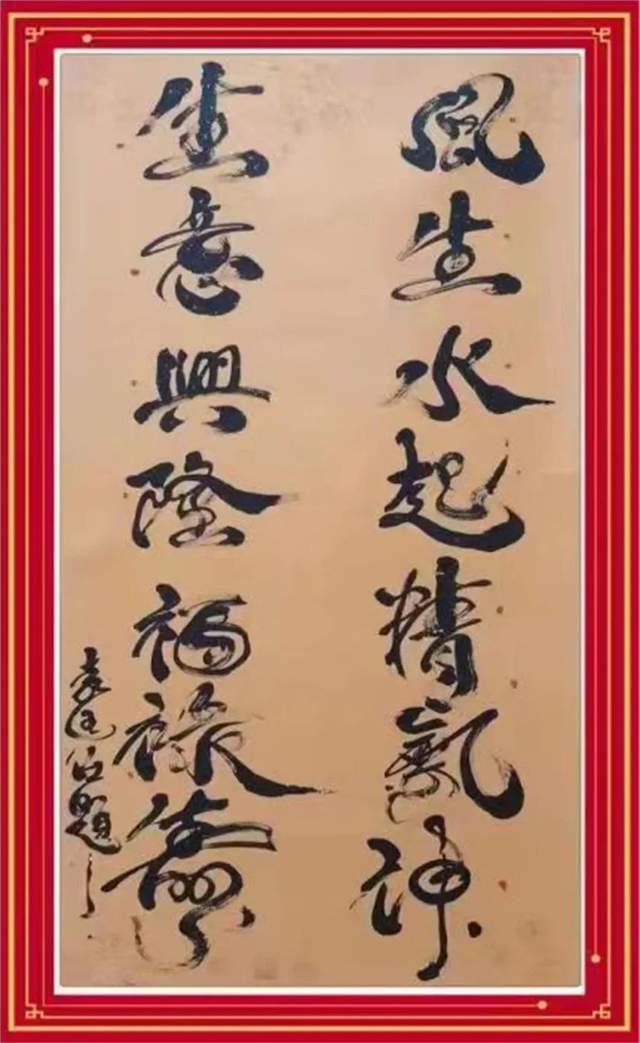 風生水起精氣神
生意興隆福祿壽
題